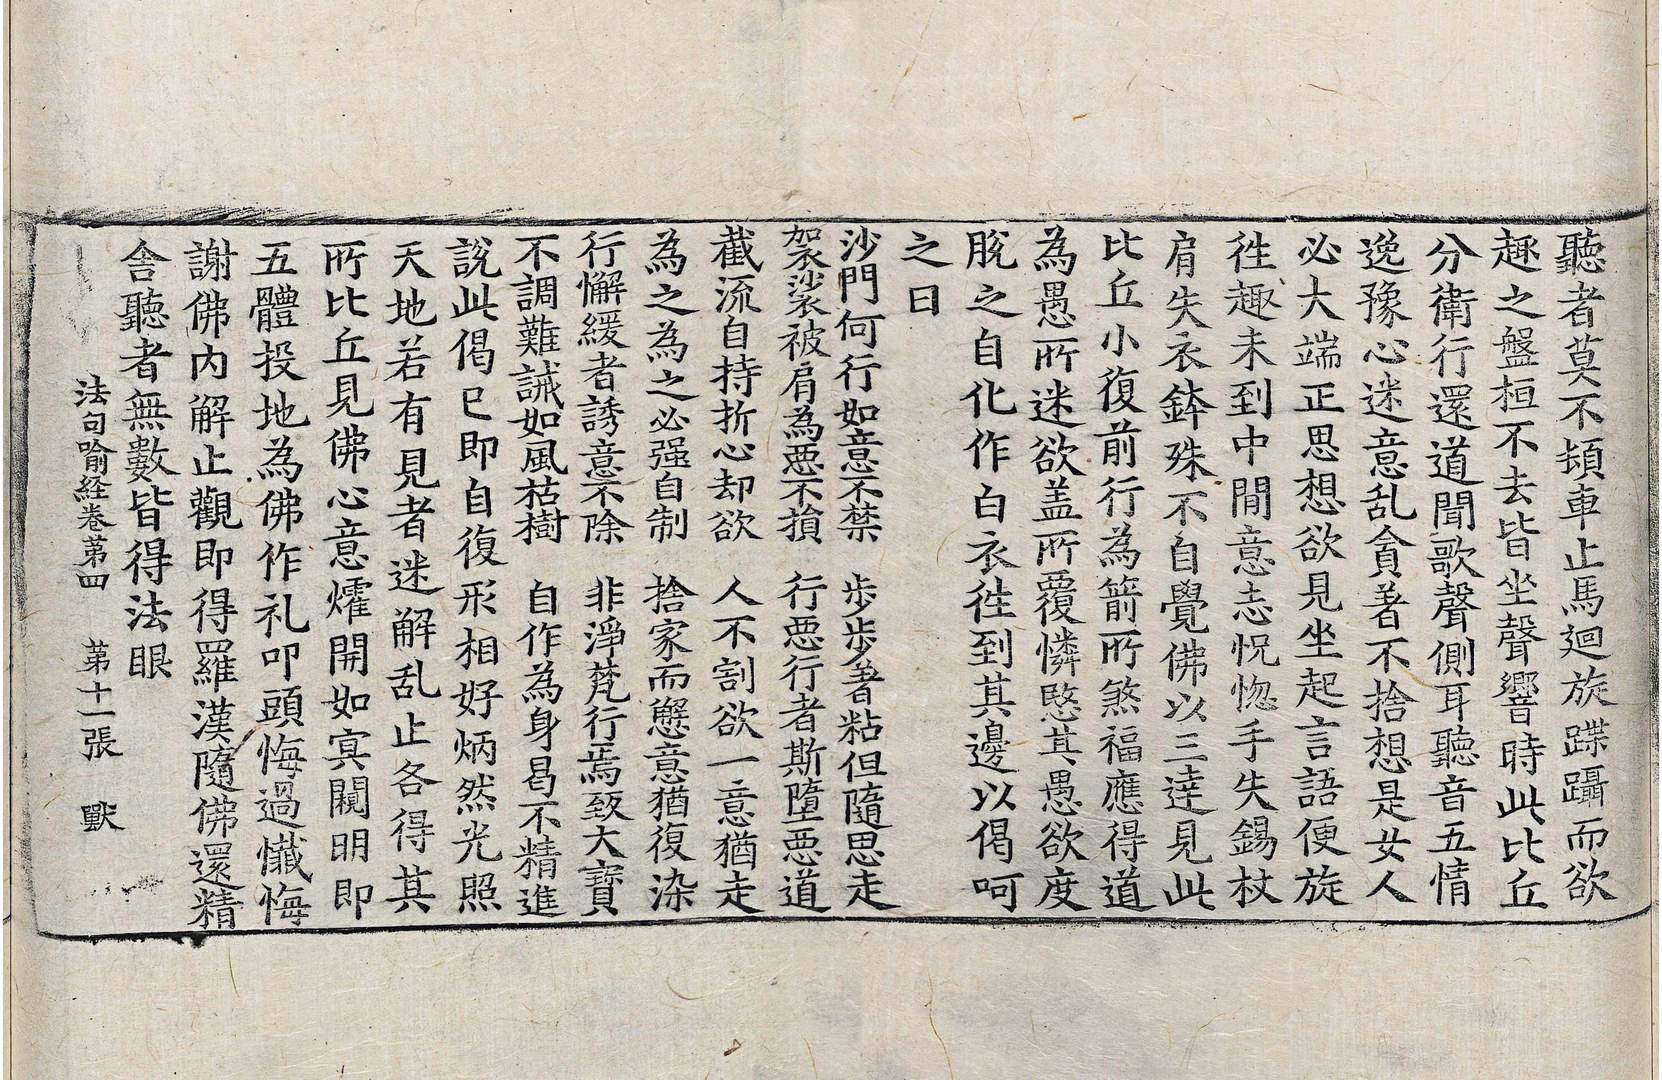 聽者莫不頓車止馬迴旋蹀躡而欲
趣之盤桓不去皆坐聲響時此比丘
分衛行還道聞歌聲側耳聽音五情
逸豫心迷意乱貪著不捨想是女人
必大端正思想欲見坐起言語便旋
往趣未到中間意志怳惚手失錫杖
肩失衣鉢殊不自覺佛以三達見此
比丘小復前行為箭所煞福應得道
為愚所迷欲盖所覆憐愍其愚欲度
脫之自化作白衣往到其邊以偈呵
之曰
沙門何行如意不禁　步步著粘但隨思走
袈裟被肩為惡不損　行惡行者斯墮惡道
截流自持折心却欲　人不割欲一意猶走
為之為之必强自制　捨家而懈意猶復染
行懈緩者誘意不除　非淨梵行焉致大寶
不調難誡如風枯樹　自作為身曷不精進
說此偈已即自復形相好炳然光照
天地若有見者迷解乱止各得其
所比丘見佛心意㸌開如冥覩明即
五體投地為佛作礼叩頭悔過懺悔
謝佛內解止觀即得羅漢隨佛還精
舍聽者無數皆得法眼
法句喻経卷苐四　苐十一張　獸